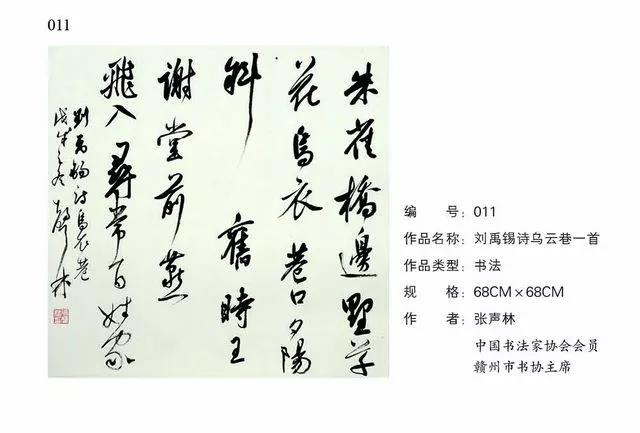 011
朱雀橋邊野草
花烏衣巷口夕陽
斜 舊時王
謝堂前燕
飛入尋常百姓家
劉禹錫詩烏衣巷
戊子之冬 聲林
编 号：011
作品名称：刘禹锡诗乌云巷一首
作品类型：书法
规 格：68CM×68CM
作 者：张声林
中国书法家协会会员
赣州市书协主席